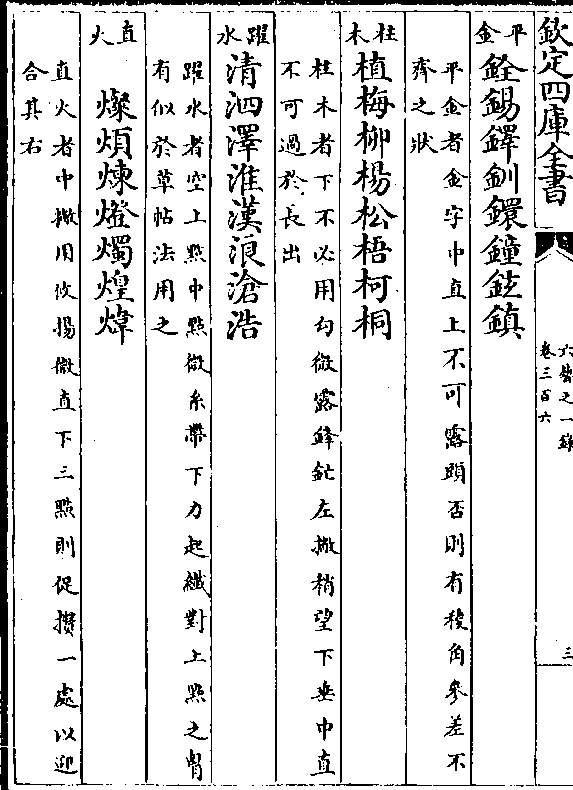 欽定四庫全書
六藝之一錄
卷三百六
三
平金
銓錫鐸釧鐶鐘鉉鎮
平金者金字中直上不可露頭否則有稜角參差不
齊之狀
柱木
植梅柳楊松梧柯桐
柱木者下不必用勾微露鋒鋩左撇稍望下垂中直
不可過於長出
躍水
清泗澤淮漢浪滄浩
躍水者空上點中點微糸帶下力起纖對上點之胷
有似於草帖法用之
直火
燦煩煉燈燭煌煒
直火者中撇用攸揚微直下三點則促攢一處以迎
合其右